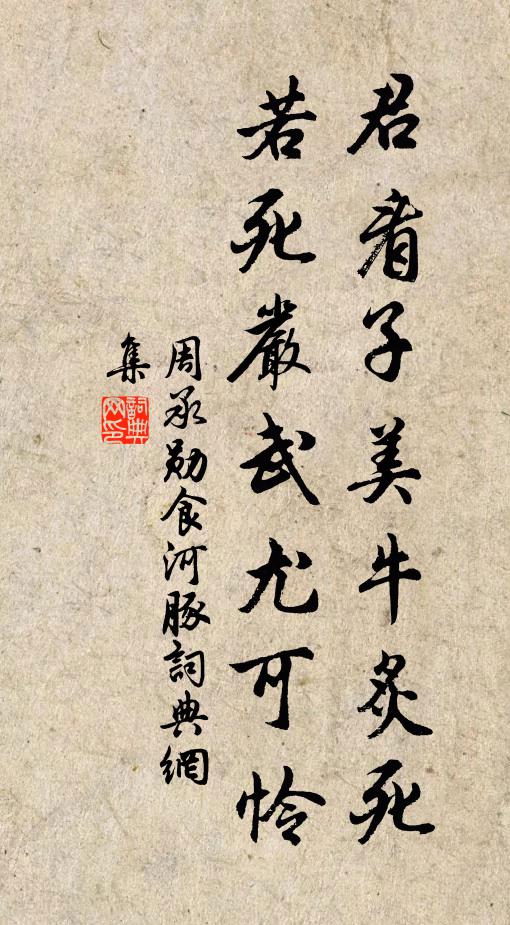 君看子美牛炙死
若死嚴武尤可怜
周承勛食河豚詞典網
集
詞典
网印